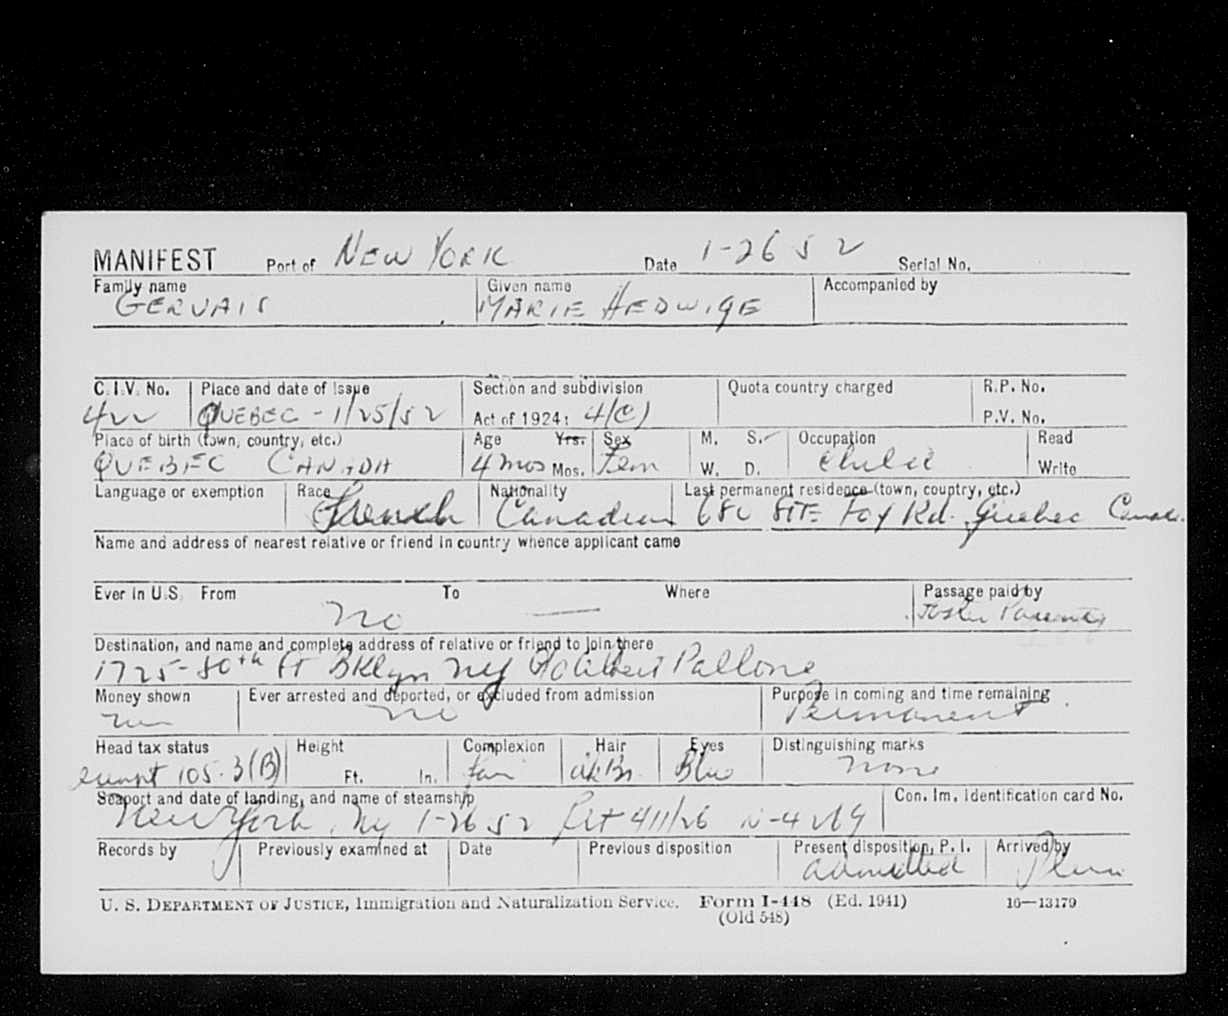 MANIFEST Port of NEW YORK Date 1-26 52 Serial No.
Family name Given name Accompanied by
GERVAIS MARIE HEDWIGE
C.I.V. No. Place and date of Issue Section and subdivision Quota country charged R.P. No.
422 QUEBEC - 1/25/52 Act of 1924: 4(C) P.V. No.
Place of birth (town, country, etc.) Age Yrs. Sex M. S. ✓ Occupation Read
QUEBEC CANADA 4 mos Mos. Fem W. D. child Write
Language or exemption Race Nationality Last permanent residence (town, country, etc.)
French Canadian STE Foy Rd. Quebec Canada
Name and address of nearest relative or friend in country whence applicant came
Ever in U.S. From To Where Passage paid by
No — Foster Parents
Destination, and name and complete address of relative or friend to join there
1725-80th St Bklyn NY Pallone
Money shown Ever arrested and deported, or excluded from admission Purpose in coming and time remaining
no Permanent
Head tax status Height Complexion Hair Eyes Distinguishing marks
exempt 105.3(B) Ft. In. fair dk Br. Blue none
Seaport and date of landing, and name of steamship Con. Im. Identification card No.
New York, NY 1-26 52 411/26
Records by Previously examined at Date Previous disposition Present disposition, P. I. Arrived by
admitted Plane
U. S. DEPARTMENT OF JUSTICE, Immigration and Naturalization Service. Form I-448 (Ed. 1941) 16—13179
(Old 548)